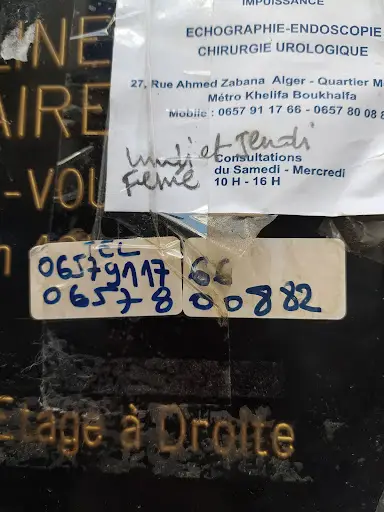 IMPUISSANCE
ECHOGRAPHIE-ENDOSCOPIE
CHIRURGIE UROLOGIQUE
27, Rue Ahmed Zabana Alger - Quartier M
Métro Khelifa Boukhalfa
Mobile : 0657 91 17 66 - 0657 80 08 8
Lundi et Jeudi
Fermé
Consultations
du Samedi - Mercredi
10 H - 16 H
LINE
AIRE
-VOU
TEL
0657 9117 66
0657 8 00882
Etage à Droite